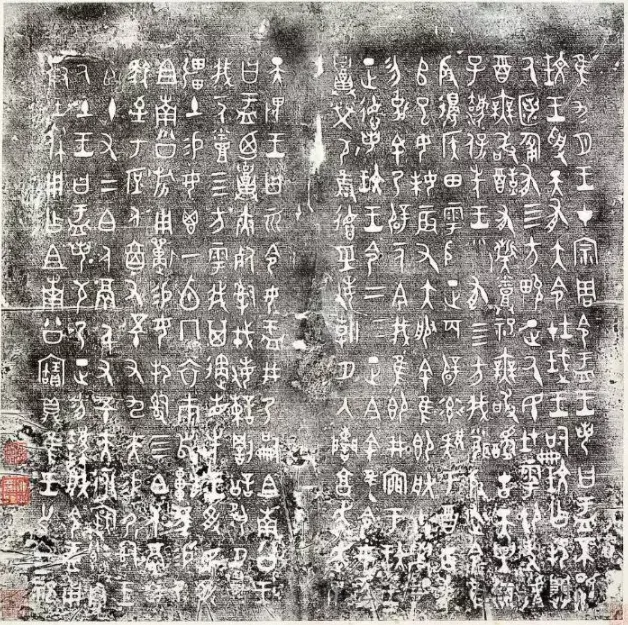 隹九月王才宗周令盂王若曰盂不顯
玟王受天有大令在珷王嗣玟乍邦闢
厥匿匍有四方畯正厥民在雩御事
酉無敢酖有祡烝祀無敢擾古天異臨
子灋保先王有四方我聞殷述令隹
殷邊侯田雩殷正百辟率肄于酉古喪
師已女妹辰有大服余隹即朕小學女
勿克余乃辟一人今我隹即井㐭于玟王
正德若玟王令二三正今余隹令女盂
召榮敬雍德巠敏朝夕入諫享奔走畏
天畏王曰令女盂井乃嗣且南公王
曰盂廼召夾死司戎敏諫罰訟夙夕召
我一人烝四方雩我其遹省先王受民受
疆土易女鬯一卣冂衣巿舄車馬易乃
且南公旂用狩易女邦司四白人鬲自
馭至于庶人六百又五十又九夫易尸司王
臣十又三白人鬲千又五十夫遷自
厥土王曰盂若敬乃正勿灋朕令盂用
對王休用乍且南公寶鼎隹王廿又三祀